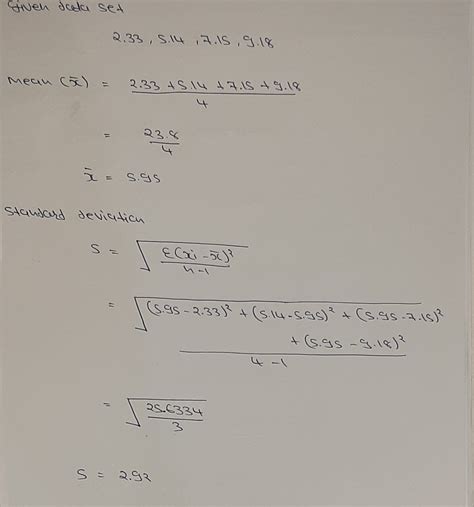 Given data set
2.33, 5.14, 7.15, 9.18
Mean (x̄) = (2.33 + 5.14 + 7.15 + 9.18) / 4
= 23.8 / 4
x̄ = 5.95
Standard deviation
S = √(Σ(xi - x̄)² / n-1)
= √((5.95 - 2.33)² + (5.14 - 5.95)² + (5.95 - 7.15)²
+ (5.95 - 9.18)² / 4-1)
= √(25.6334 / 3)
S = 2.92